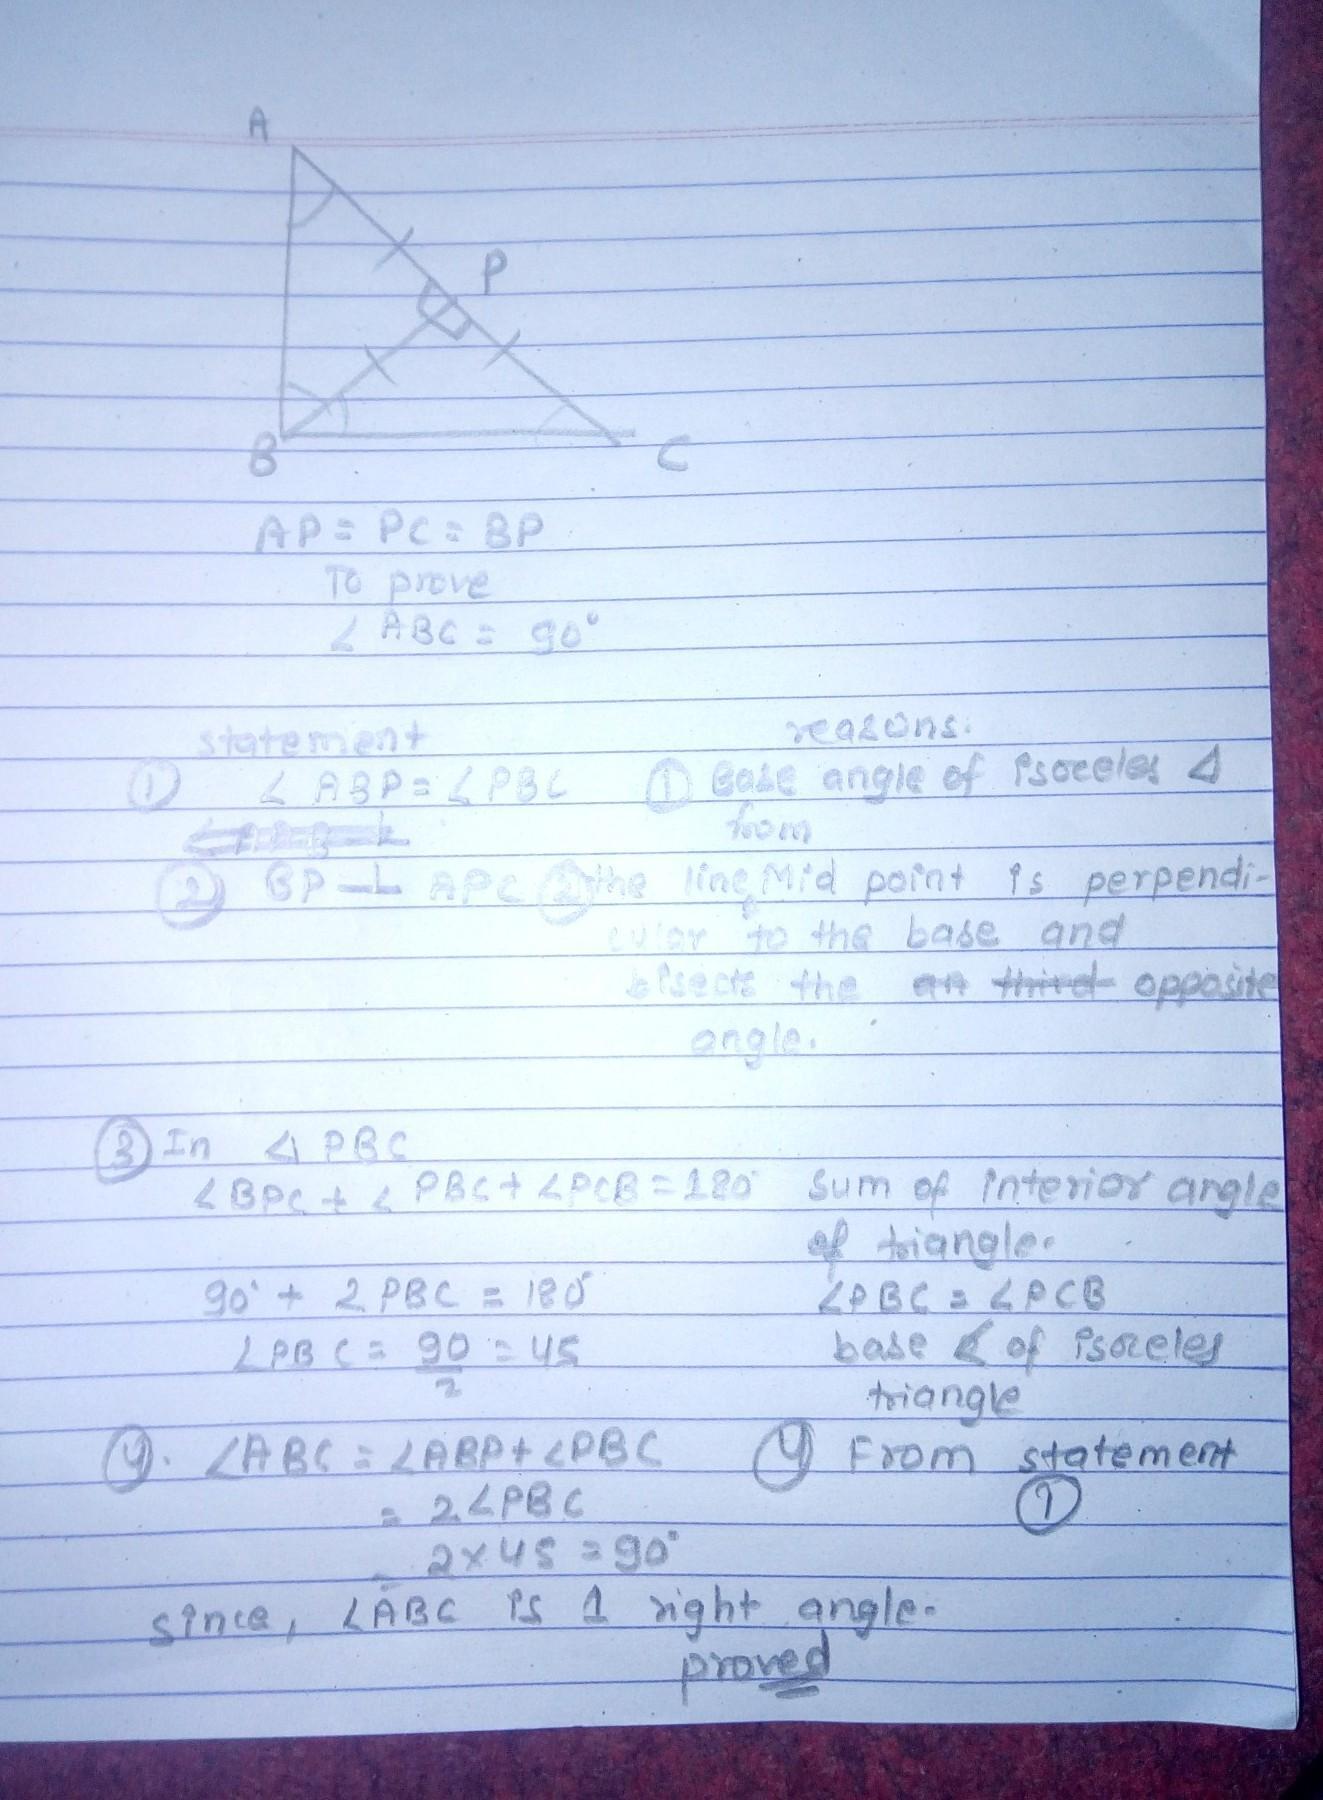 A
P
B
C
AP = PC = BP
To prove
∠ ABC = 90°
statement reasons.
① ∠ ABP = ∠ PBC ① Base angle of isoceles Δ
② BP ⊥ APC ② the line from Mid point is perpendi-
cular to the base and
bisects the opposite
angle.
③ In Δ PBC
∠BPC + ∠ PBC + ∠PCB = 180° sum of interior angle
of triangle.
90° + 2 PBC = 180° ∠PBC = ∠PCB
∠PBC = 90/2 = 45 base ∠ of isoceles
triangle
④. ∠ABC = ∠ABP + ∠PBC ④ From statement
= 2∠PBC ①
= 2×45 = 90°
since, ∠ABC is 1 right angle.
proved